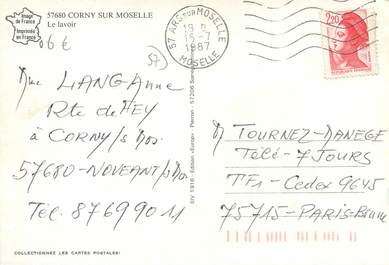 Image
de France
Imprimée
en France
57680 CORNY SUR MOSELLE
Le lavoir
06 €
57
57 ARS-SUR-MOSELLE
15-7
1987
MOSELLE
2,20
Mme LANG Anne
Rte de FEY
à CORNY s/Mos.
57680-NOVEANT s/Mos
Tél. 87699011
EIV 1918 - Edition «Europ» - Pierron - 57206
TOURNEZ-MANEGE
Télé-7 JOURS
TF1-Cedex 9645
75715-PARIS-Brune
COLLECTIONNEZ LES CARTES POSTALES!